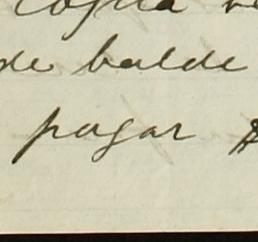 copia
de balde
pagar